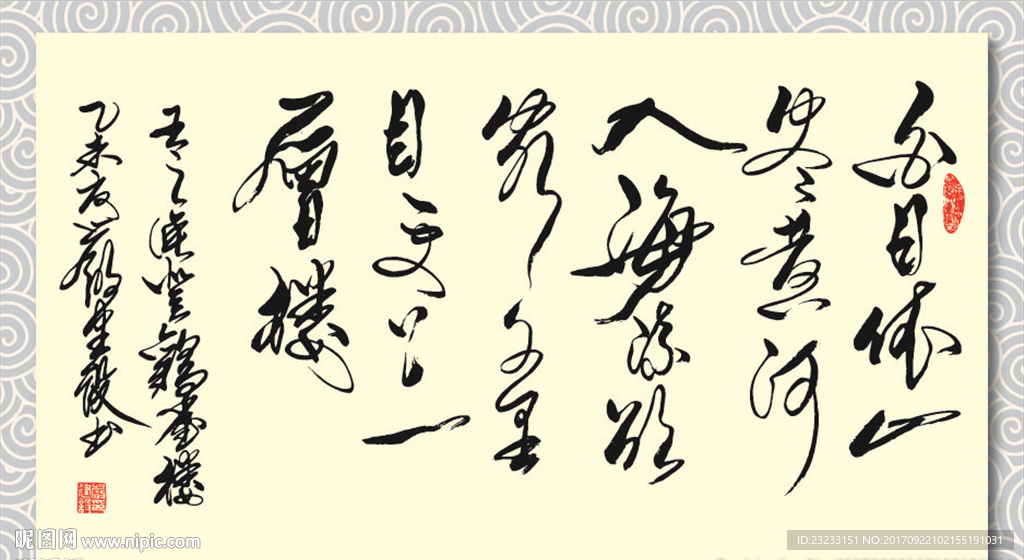 白日依山
尽黄河
入海流欲
窮千里
目更上一
層樓
王之涣登鹳雀楼
乙未夏
书
昵图网 www.nipic.com
ID:23233151 NO:20170922102155191031